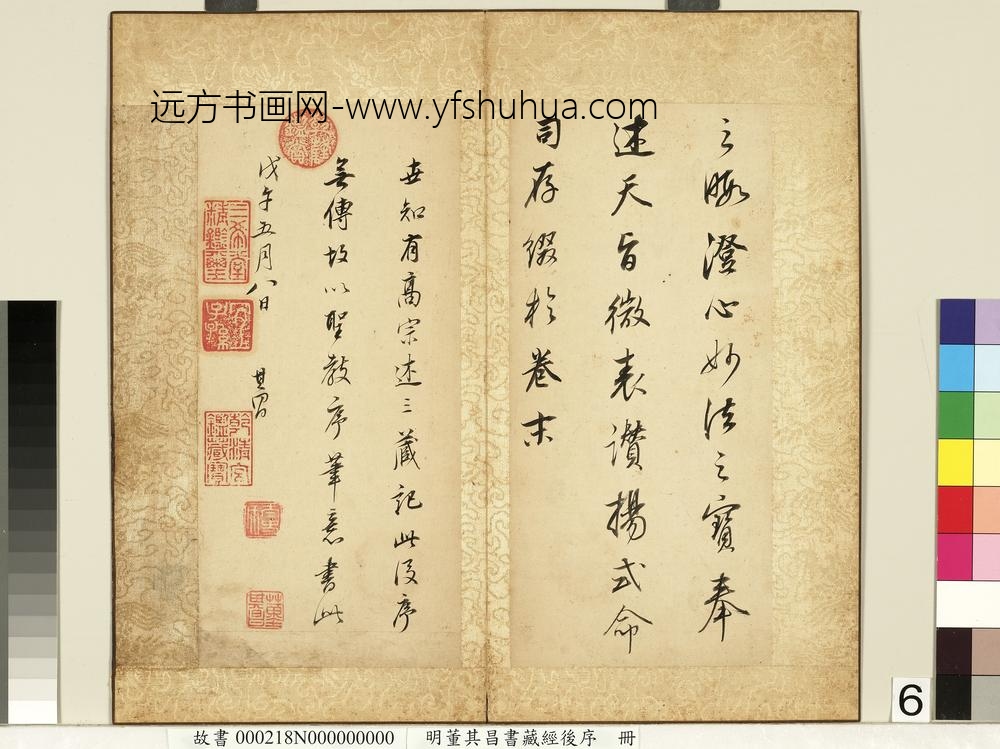 远方书画网-www.yfshuhua.com
之暇澄心妙法之寶奉
述天旨微表讚揚式命
司存綴於卷末
世知有高宗述三藏記此後序
無傳故以聖教序筆意書此
戊午五月八日
其昌
三希堂
精鑑璽
宜子孫
乾清宮
鑑藏寶
董其昌
6
故書 000218N000000000 明董其昌書藏經後序 冊